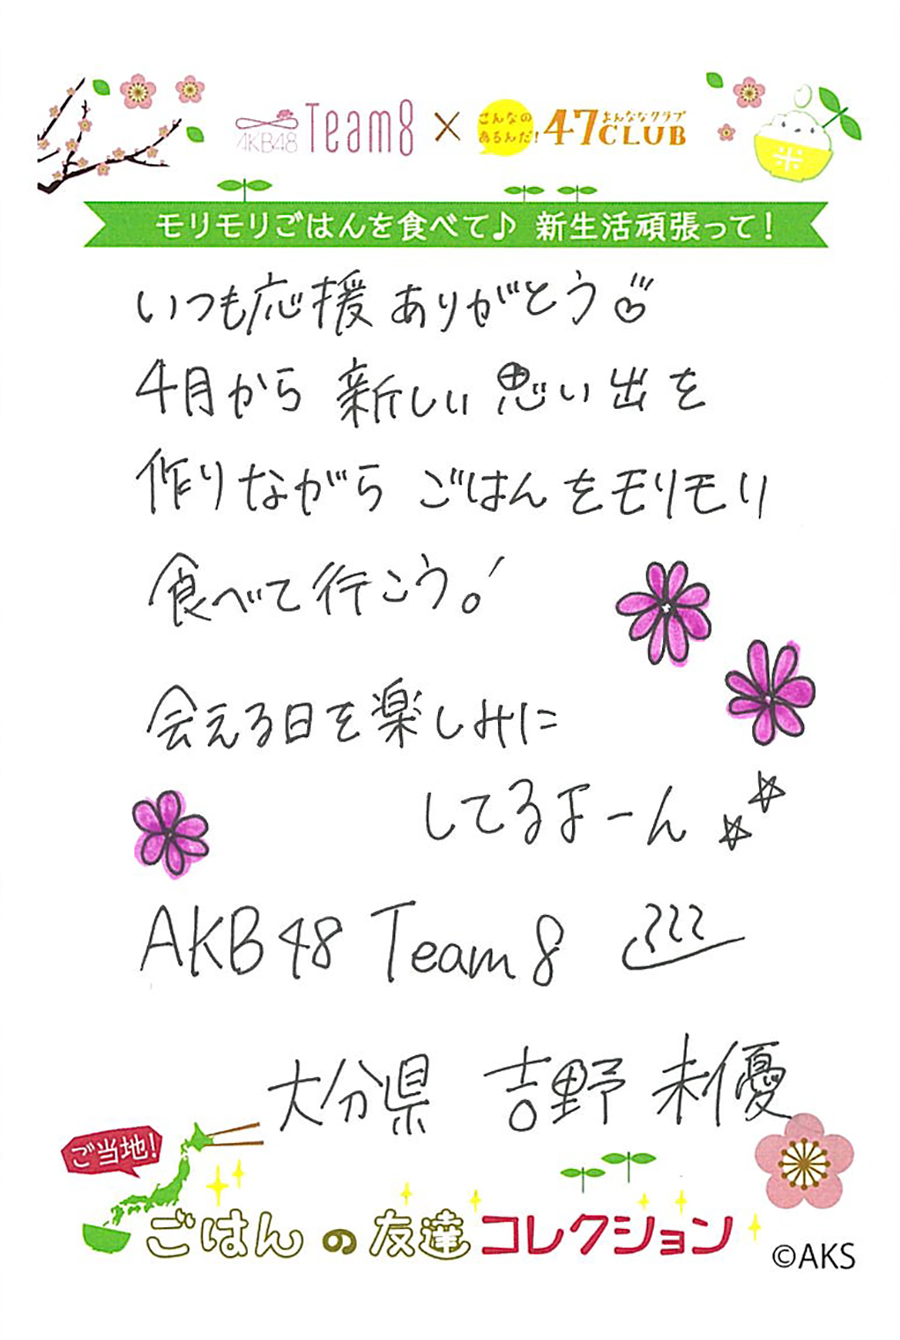 AKB48 Team8 × こんなの あるんだ! 47CLUB よんななクラブ
米
モリモリごはんを食べて♪ 新生活頑張って!
いつも応援ありがとう♡
4月から新しい思い出を
作りながらごはんをモリモリ
食べて行こう!
会える日を楽しみに
してるよーん☆☆
AKB48 Team8
大分県 吉野未優
ご当地!
ごはんの友達コレクション
©AKS